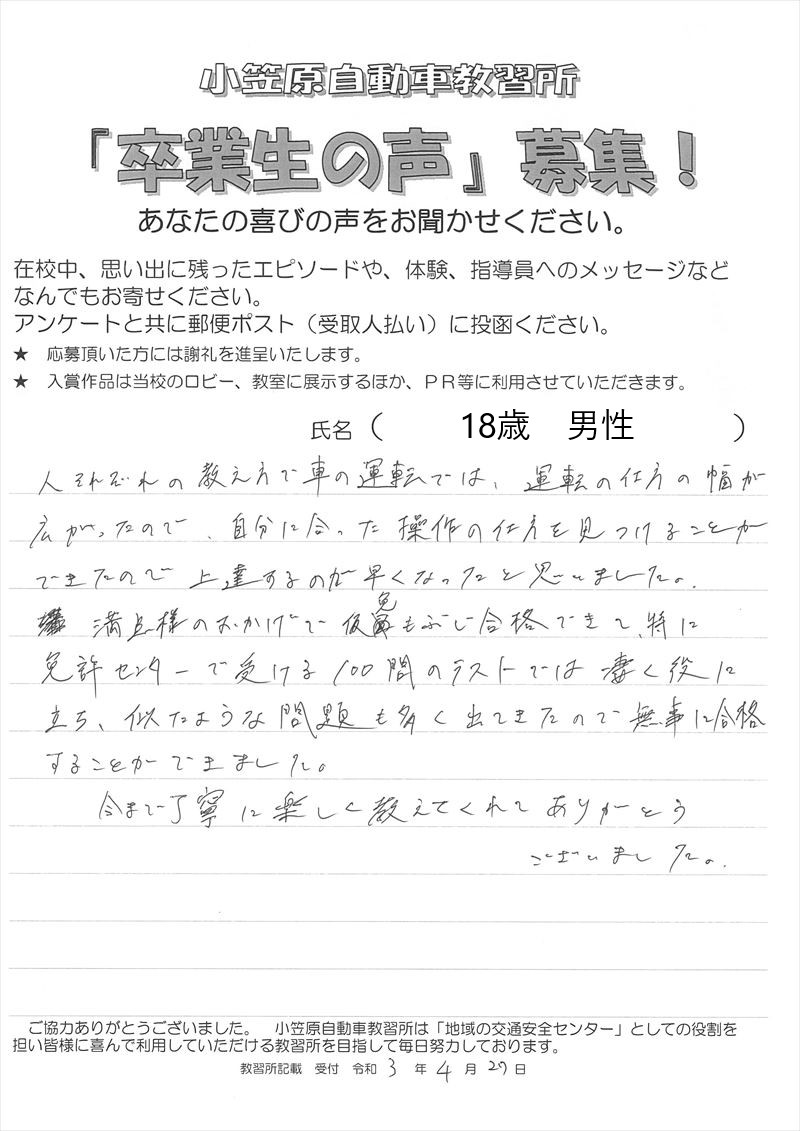 小笠原自動車教習所
『卒業生の声』募集!
あなたの喜びの声をお聞かせください。
在校中、思い出に残ったエピソードや、体験、指導員へのメッセージなど
なんでもお寄せください。
アンケートと共に郵便ポスト(受取人払い)に投函ください。
★ 応募頂いた方には謝礼を進呈いたします。
★ 入賞作品は当校のロビー、教室に展示するほか、PR等に利用させていただきます。
氏名( 18歳 男性 )
人それぞれの教え方で車の運転では、運転の仕方の幅が
広がったので、自分に合った操作の仕方を見つけることが
できたので上達するのが早くなったと思いました。
満点様のおかげで仮免もぶじ合格できて、特に
免許センターで受ける100問のテストでは凄く役に
立ち、似たような問題も多く出てきたので無事に合格
することができました。
今まで丁寧に楽しく教えてくれてありがとう
ございました。
ご協力ありがとうございました。 小笠原自動車教習所は「地域の交通安全センター」としての役割を
担い皆様に喜んで利用していただける教習所を目指して毎日努力しております。
教習所記載 受付 令和 3 年 4 月 27 日